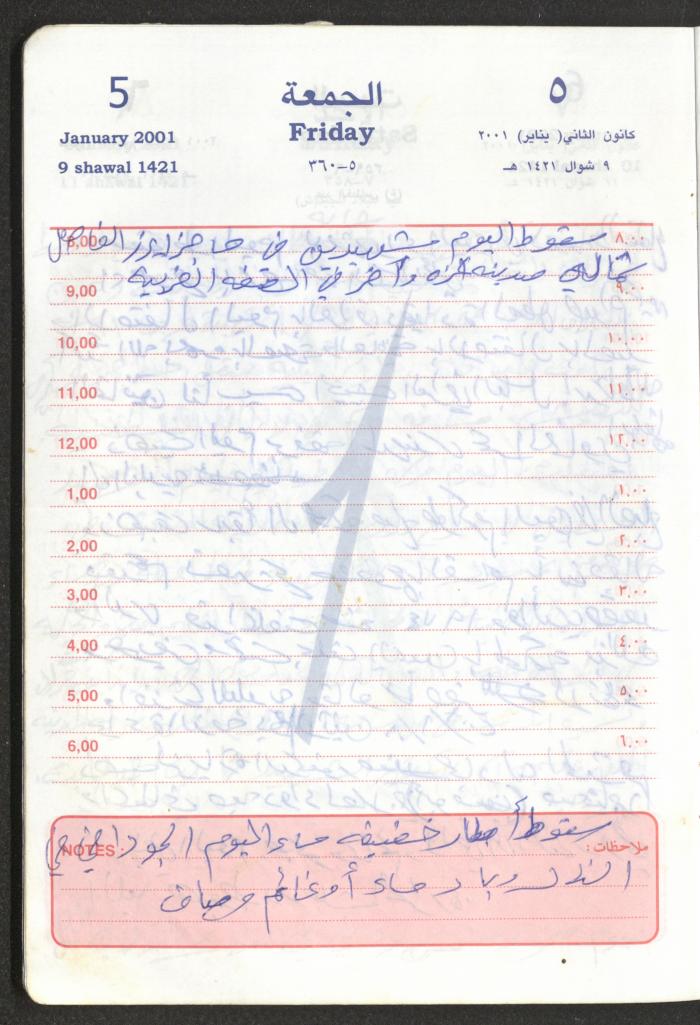 5 الجمعة ٥
January 2001 Friday كانون الثاني( يناير) ٢٠٠١
9 shawal 1421 ٥-٣٦٠ ٩ شوال ١٤٢١ هـ
8,00 سقوط اليوم شهيدين في حاجز ايرز الفاصل ٨,٠٠
شمالي مدينة غزة وآخر في الضفة الغربية
9,00 ٩,٠٠
10,00 ١٠,٠٠
11,00 ١١,٠٠
12,00 ١٢,٠٠
1,00 ١,٠٠
2,00 ٢,٠٠
3,00 ٣,٠٠
4,00 ٤,٠٠
5,00 ٥,٠٠
6,00 ٦,٠٠
1
NOTES : ملاحظات :
سقوط أمطار خفيفة مساء اليوم الجو دافئ في
النهار وبارد مساء أو غائم وصاف